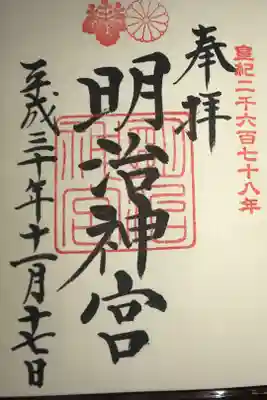 皇紀二千六百七十八年
奉拝
明治神宮
平成三十年十一月十七日